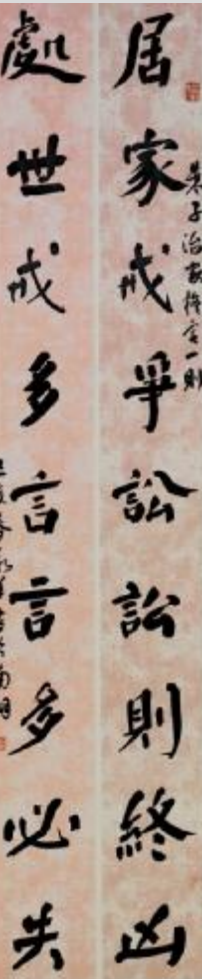 居家戒爭訟訟則終凶
朱子治家格言一則
處世戒多言言多必失